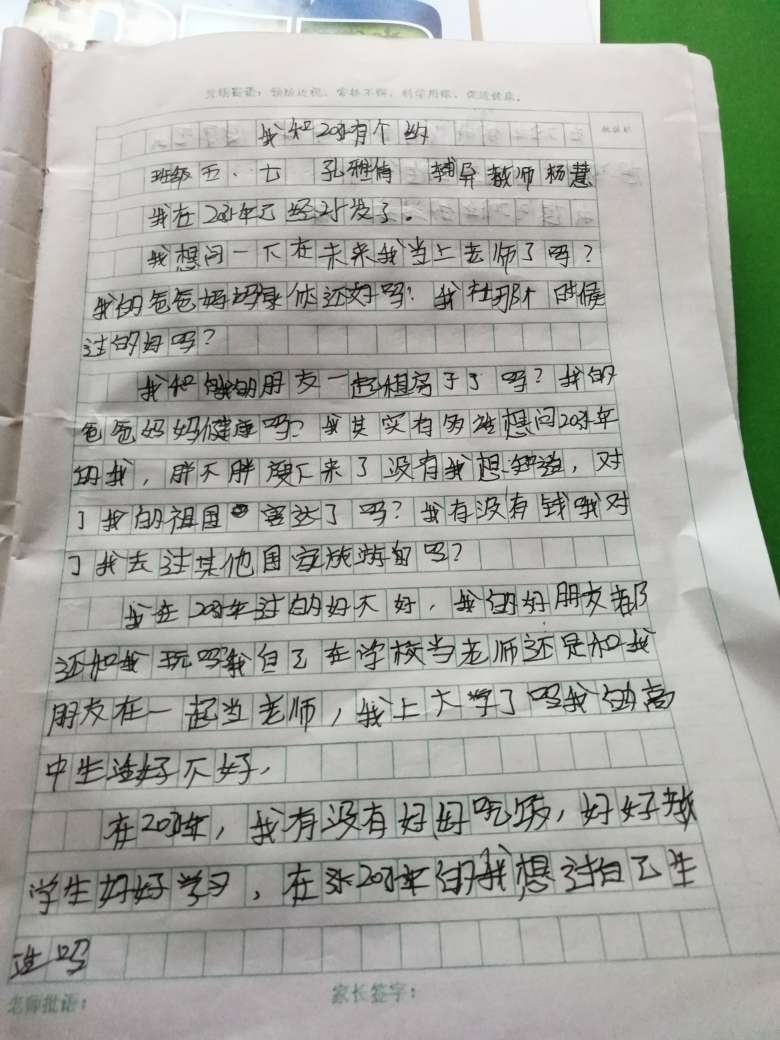 我和2035有个约
班级五、七 孔雅倩 辅导教师杨慧
我在2035年已经对发了。
我想问一下在未来我当上老师了吗?
我的爸爸妈妈身体还好吗?我在那个时候
过的好吗?
我和我的朋友一起租房子了吗?我的
爸爸妈妈健康吗?我其实有多话想问2035年
的我,胖不胖瘦下来了没有我想知道,对
了我的祖国富达了吗?我有没有钱哦对
了我去过其他国家旅游的吗?
我在2035年过的好不好,我的好朋友都
还和我玩吗我自己在学校当老师还是和我
朋友在一起当老师,我上大学了吗我的高
中生活好不好,
在2035年,我有没有好好吃饭,好好教
学生好好学习,在2035年的我,想过自己生
活吗
老师批语:
家长签字: